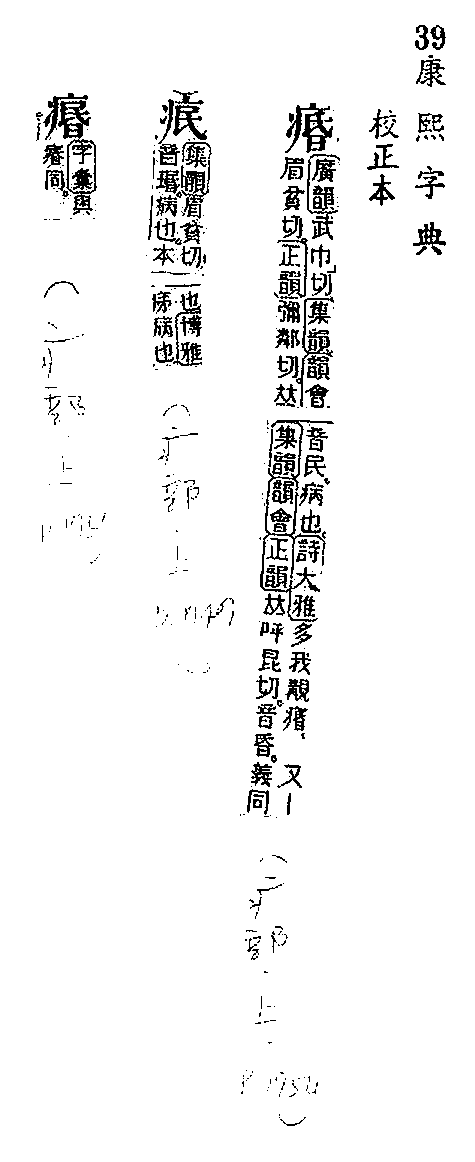 39
康熙字典
校正本
痻
廣韻武巾切集韻韻會
眉貧切。正韻彌鄰切。𠀤
音民。病也。詩大雅多我覯痻、又一
集韻韻會正韻𠀤呼昆切。音昏。義同
(疒部·上·
P1954)
痕
集韻眉貧切
音珉。病也。本
也博雅
病也
(疒部·上·
字彙與
痻同。
(疒部·上